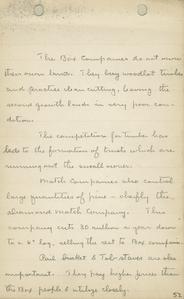 The Box Companies do not own
their own land. They buy woodlot timber
and practice clean cutting, leaving the
second growth lands in very poor con-
dition.
The competition for timber has
led to the formation of trusts which are
running out the small owner.
Match Companies also control
large quantities of pine - chiefly the
Diamond Match Company. This
company cuts 30 million a year down
to a 6" log, selling the rest to Box companies.
Pail, basket & Tub-staves are also
important. They pay higher prices than
the Box people & utilize closely.
52